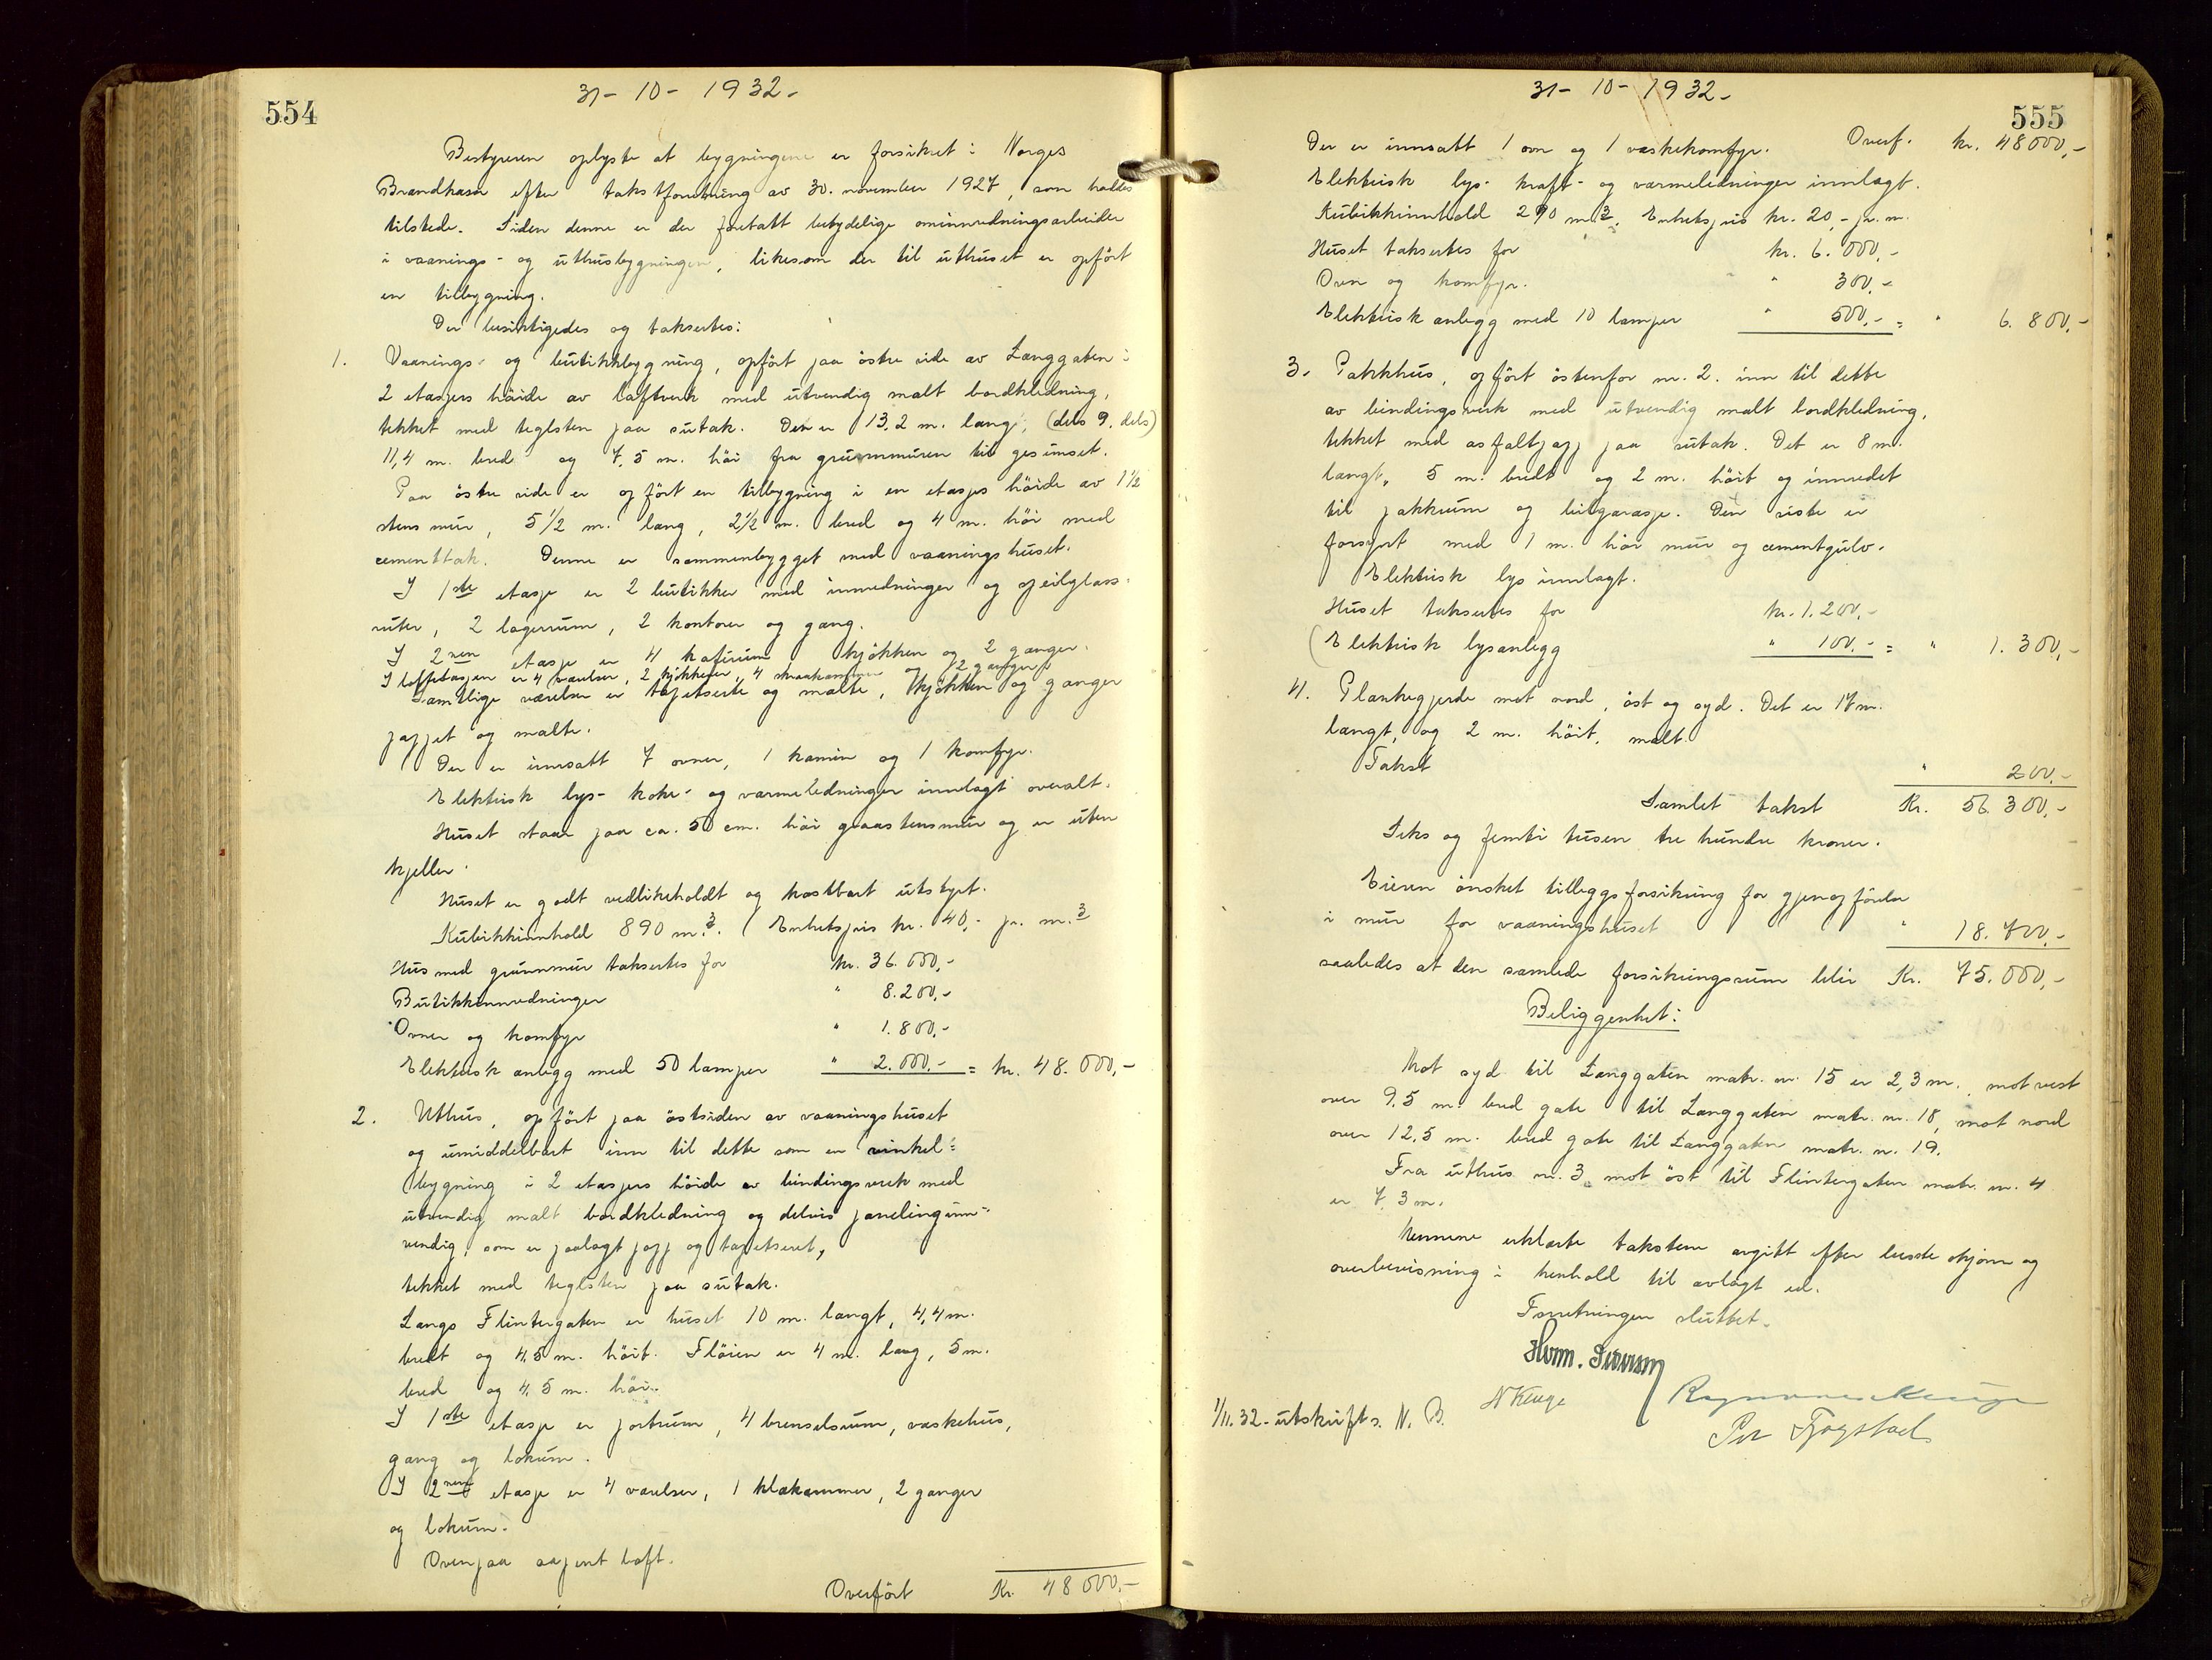 554
31 - 10 - 1932 -
Bestyreren oplyste at bygningene er forsikret i Norges
Brandkasse efter takstforretning av 30. november 1927, som holdes
tilstede. Siden denne er der foretatt betydelige ominnredningsarbeider
i vaanings- og uthusbygningen, likesom der til uthuset er opfört
en tilbygning.
Der besiktigedes og taksertes:
1. Vaanings- og butikkbygning, opfört paa östre side av Langgaten i
2 etasjers höide av laftverk med utvendig malt bordkledning,
tekket med teglsten paa sutak. Den er 13.2 m. lang, (dels 9, dels)
11,4 m. bred og 7,5 m. höi fra grunnmuren til gesimset.
Paa östre side er opfört en tilbygning i en etasjes höide av 1 1/2
stens mur, 5 1/2 m. lang, 2 1/2 m. bred og 4 m. höi med
cementtak. Denne er sammenbygget med vaaningshuset.
I 1ste etasje er 2 butikker med innredninger og speilglass-
ruter, 2 lagerrum, 2 kontorer og gang.
I 2nen etasje er 4 kaferum kjökken og 2 ganger.
I loftetasjen er 4 værelser, 2 kjökkener, 4 skraakammer og 2 ganger.
Samtlige værelser er tapetserte og malte, kjökken og ganger
pappet og malte.
Der er innsatt 7 ovner, 1 kamin og 1 komfyr.
Elektrisk lys- koke- og varmeledninger innlagt overalt.
Huset staar paa ca. 50 cm. höi graastensmur og er uten
kjeller.
Huset er godt vedlikeholdt og kostbart utstyrt.
Kubikkinnhold 890 m.3. Enhetspris kr. 40,- pr. m.3
Hus med grunnmur taksertes for kr. 36.000,-
Butikkinnredninger " 8.200,-
Ovner og komfyr " 1.800,-
Elektrisk anlegg med 50 lamper " 2.000.- = kr. 48.000,-
2. Uthus, opfört paa östsiden av vaaningshuset
og umiddelbart inn til dette som en vinkel-
bygning i 2 etasjers höide av bindingsverk med
utvendig malt bordkledning og delvis paneling inn-
vendig, som er paalagt papp og tapetseret,
tekket med teglsten paa sutak.
Langs Flintergaten er huset 10 m. langt, 4,4 m.
bredt og 4,5 m. höit. Flöien er 4 m. lang, 5 m.
bred og 4,5 m. höi.
I 1ste etasje er portrum, 4 brenselsrum, vaskehus,
gang og lokum.
I 2nen etasje er 4 værelser, 1 klækammer, 2 ganger
og lokum.
Ovenpaa aapent loft.
Overfört Kr. 48000,-
555
31 - 10 - 1932 -
Overf. kr. 48000,-
Der er innsatt 1 ovn og 1 vaskekomfyr.
Elektrisk lys- kraft- og varmeledninger innlagt.
Kubikkinnhold 290 m.3. Enhetspris kr. 20,- pr. m.
Huset taksertes for kr. 6.000,-
Ovn og komfyr. " 300,-
Elektrisk anlegg med 10 lamper " 500,- = " 6.800,-
3. Pakkhus, opfört östenfor nr. 2. inn til dette
av bindingsverk med utvendig malt bordkledning,
tekket med asfaltpapp paa sutak. Det er 8 m.
langt, 5 m. bredt og 2 m. höit og innredet
til pakkrum og bilgarasje. Den siste er
forsynt med 1 m. höi mur og cementgulv.
Elektrisk lys innlagt.
Huset taksertes for kr. 1.200,-
Elektrisk lysanlegg " 100.- = " 1.300,-
4. Plankegjerde mot nord, öst og syd. Det er 17 m.
langt, og 2 m. höit, malt.
Takst " 200,-
Samlet takst Kr. 56.300,-
Seks og femti tusen tre hundre kroner.
Eieren önsket tilleggsforsikring for gjenopförelse
i mur for vaaningshuset " 18.700,-
saaledes at den samlede forsikringssum blir Kr. 75.000,-
Beliggenhet:
Mot syd til Langgaten matr. nr. 15 er 2,3 m., mot vest
over 9,5 m. bred gate til Langgaten matr. nr. 18, mot nord
over 12,5 m. bred gate til Langgaten matr. nr. 19.
Fra uthus nr. 3 mot öst til Flintergaten matr. nr. 4
er 7,3 m.
Mennene erklærte takstene avgitt efter beste skjönn og
overbevisning i henhold til avlagt ed.
Forretningen sluttet.
Herm. Sivertsen
N Kluge
Per Fjogstad
1/11.32 - utskrift s. N. B.